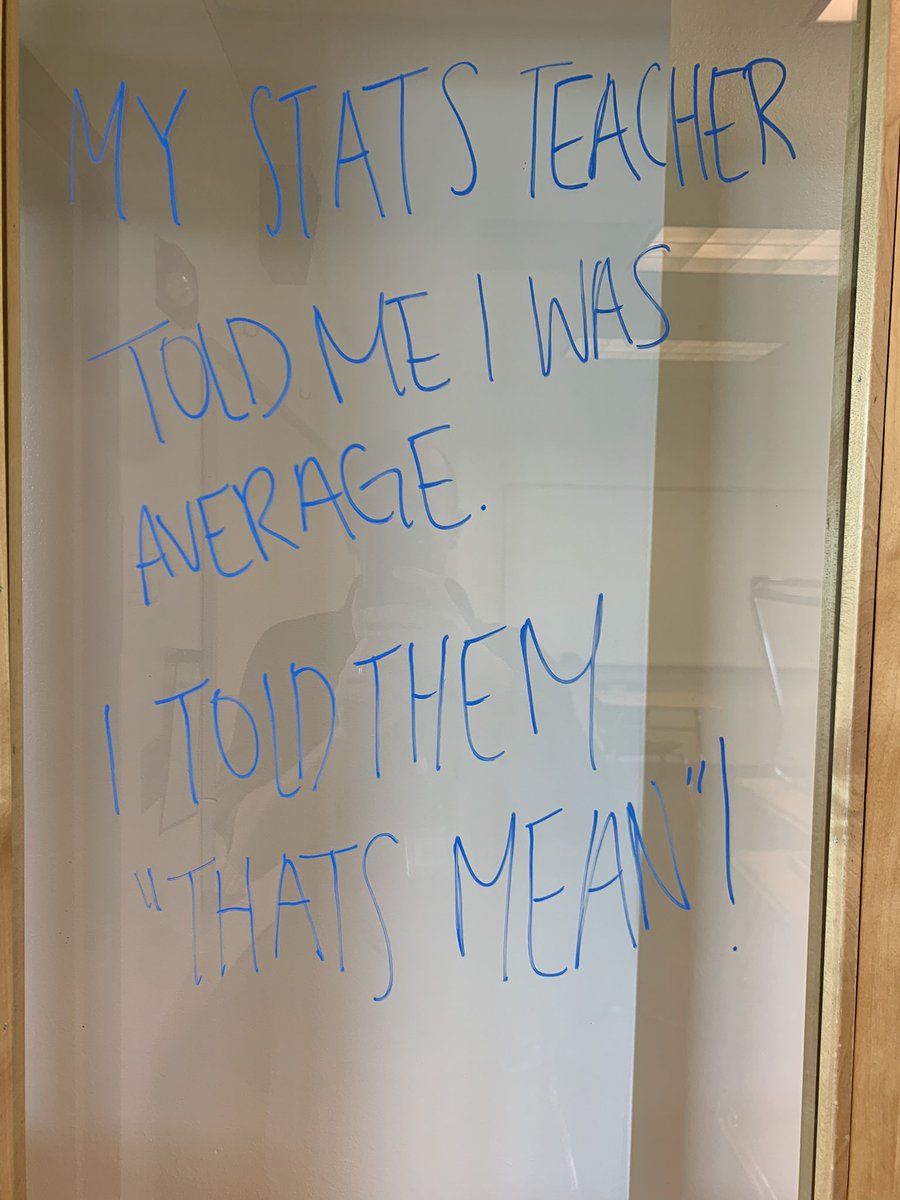 MY STATS TEACHER
TOLD ME I WAS
AVERAGE.
I TOLD THEM
"THATS MEAN"!